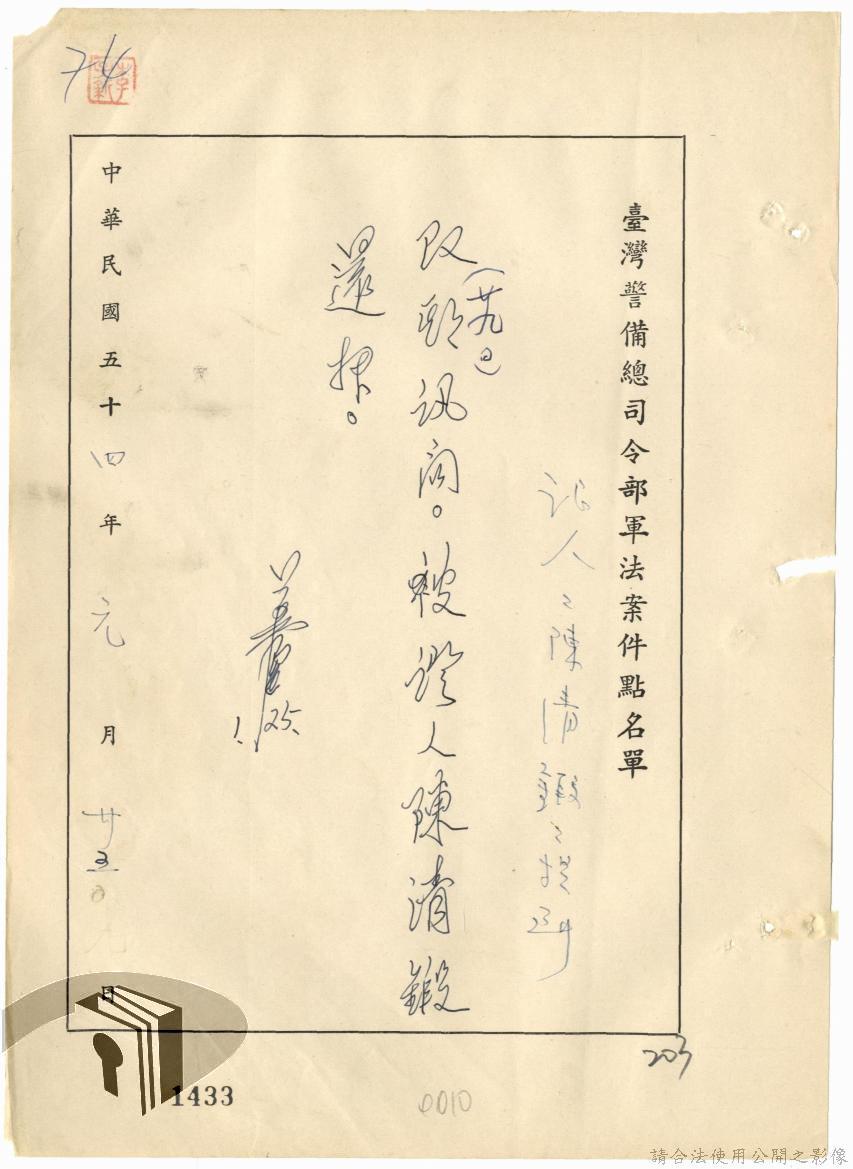 臺灣警備總司令部軍法案件點名單
證人:陳清鍛:提到
改期訊問。被證人陳清鍛
(廿九日)
還押。
1/25.
中華民國五十四年元月廿五日
74
203
1433
0010
請合法使用公開之影像